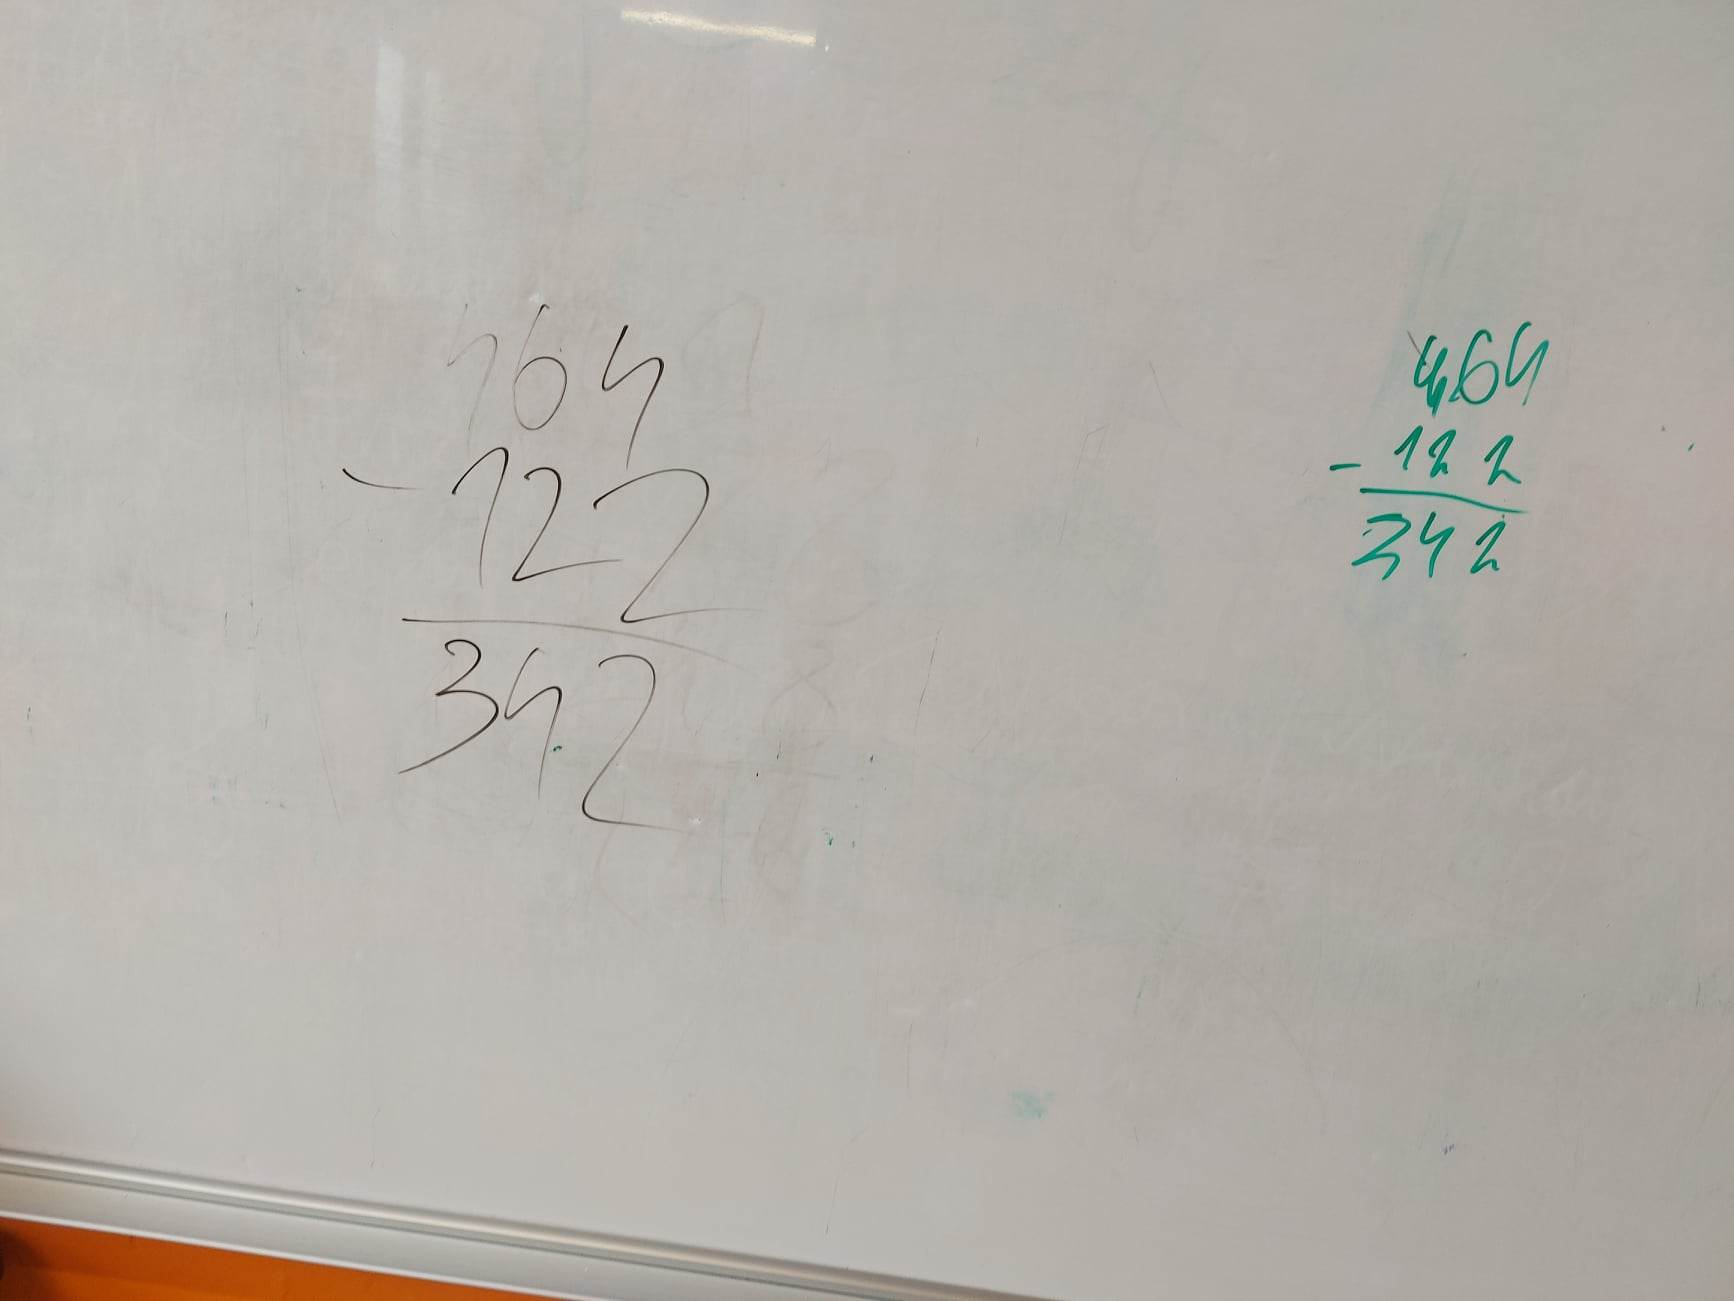 464
- 122
342
464
- 122
342